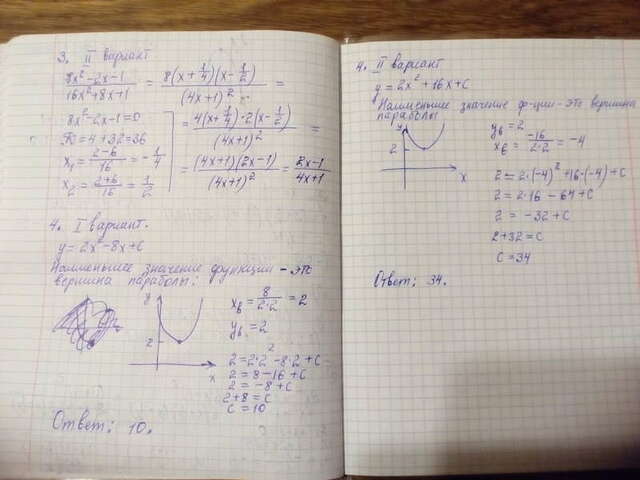 3. II вариант
8x²-2x-1 / 16x²+8x+1 = 8(x+1/4)(x-1/2) / (4x+1)² =
8x²-2x-1=0
D=4+32=36
x₁=2-6/16=-1/4
x₂=2+6/16=1/2
= 4(x+1/4)·2(x-1/2) / (4x+1)² =
= (4x+1)(2x-1) / (4x+1)² = 2x-1 / 4x+1
4. I вариант.
y=2x²-8x+c
Наименьшее значение функции - это
вершина параболы:
y
2
x
xв = 8/2·2 = 2
yв = 2
2=2·2²-8·2+c
2=8-16+c
2=-8+c
2+8=c
c=10
Ответ: 10.
4. II вариант
y=2x²+16x+c
Наименьшее значение ф-ции - это вершина
параболы
y
2
x
yв=2
xв=-16/2·2=-4
2=2·(-4)²+16·(-4)+c
2=2·16-64+c
2=-32+c
2+32=c
c=34
Ответ: 34.